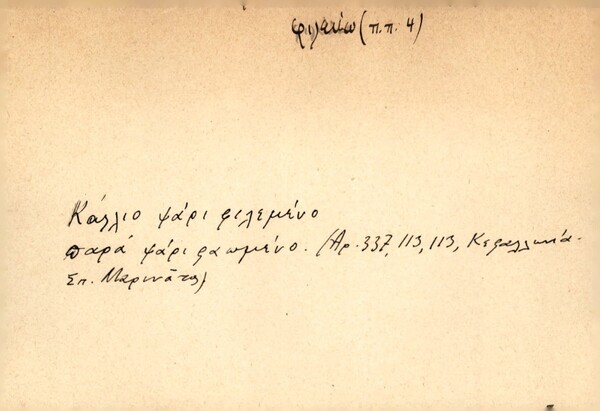 φιλεύω (π.π. 4)
Κάλλιο ψάρι φιλεμένο
παρά ψάρι φαωμένο. (Αρ. 337, 113, 113, Κεφαλλωνία.
Σπ. Μαρινάτος)